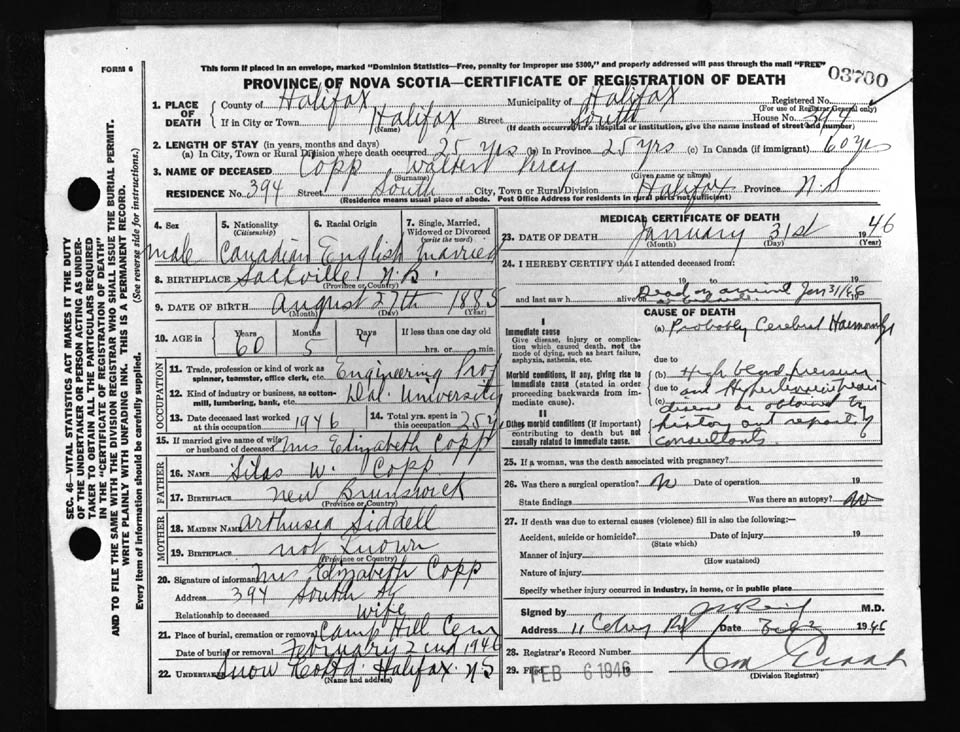 FORM 6
This form if placed in an envelope, marked "Dominion Statistics—Free, penalty for improper use $300," and properly addressed will pass through the mail "FREE"
PROVINCE OF NOVA SCOTIA—CERTIFICATE OF REGISTRATION OF DEATH
03700
1. PLACE OF DEATH
County of Halifax Municipality of Halifax Registered No.
(For use of Registrar General only)
If in City or Town Halifax Street South House No. 394
(Name) (If death occurred in a hospital or institution, give the name instead of street and number)
2. LENGTH OF STAY (in years, months and days)
(a) In City, Town or Rural Division where death occurred 25 yrs (b) In Province 25 yrs (c) In Canada (if immigrant) 60 yrs
3. NAME OF DECEASED Copp Walter Percy
(Surname) (Given name or names)
RESIDENCE No. 394 Street South City, Town or Rural Division Halifax Province N.S
(Residence means usual place of abode. Post Office Address for residents in rural parts not sufficient)
4. Sex male
5. Nationality (Citizenship) Canadian
6. Racial Origin English
7. Single, Married, Widowed or Divorced (write the word) married
8. BIRTHPLACE Sackville N.B.
(Province or Country)
9. DATE OF BIRTH August 27th 1885
(Month) (Day) (Year)
10. AGE in Years 60 Months 5 Days 4 If less than one day old hrs. or min.
OCCUPATION
11. Trade, profession or kind of work as spinner, teamster, office clerk, etc. Engineering Prof
12. Kind of industry or business, as cotton-mill, lumbering, bank, etc. Dal. University
13. Date deceased last worked at this occupation 1946
14. Total yrs. spent in this occupation 25 yrs
15. If married give name of wife or husband of deceased Mrs Elizabeth Copp
FATHER
16. NAME Silas W. Copp
17. BIRTHPLACE New Brunswick
(Province or Country)
MOTHER
18. MAIDEN NAME Arthusea Siddell
19. BIRTHPLACE not known
(Province or Country)
20. Signature of informant Mrs Elizabeth Copp
Address 394 South St
Relationship to deceased wife
21. Place of burial, cremation or removal Camp Hill Cem
Date of burial or removal February 2nd 1946
22. UNDERTAKER Snow Co Ltd Halifax N.S
(Name and address)
MEDICAL CERTIFICATE OF DEATH
23. DATE OF DEATH January 31st 1946
(Month) (Day) (Year)
24. I HEREBY CERTIFY that I attended deceased from:
19 to 19
and last saw h alive on Dead on arrival Jan 31/46
CAUSE OF DEATH
I
Immediate cause
Give disease, injury or complication which caused death, not the mode of dying, such as heart failure, asphyxia, asthenia, etc.
(a) Probably Cerebral Haemorrhge
due to
Morbid conditions, if any, giving rise to immediate cause (stated in order proceeding backwards from immediate cause).
(b) High blood pressure
due to and Hypertensive heart
(c) disease as obtained by
history and reports of
consultants.
II
Other morbid conditions (if important) contributing to death but not causally related to immediate cause.
25. If a woman, was the death associated with pregnancy?
26. Was there a surgical operation? no Date of operation 19
State findings Was there an autopsy? no
27. If death was due to external causes (violence) fill in also the following:—
Accident, suicide or homicide? Date of injury 19
(State which)
Manner of injury
(How sustained)
Nature of injury
Specify whether injury occurred in industry, in home, or in public place
Signed by M.D.
Address Date Feb 2 1946
28. Registrar's Record Number
29. Filed FEB 6 1946
(Division Registrar)
SEC. 46—VITAL STATISTICS ACT MAKES IT THE DUTY
OF THE UNDERTAKER OR PERSON ACTING AS UNDER-
TAKER TO OBTAIN ALL THE PARTICULARS REQUIRED
IN THE "CERTIFICATE OF REGISTRATION OF DEATH"
AND TO FILE THE SAME WITH THE DIVISION REGISTRAR WHO SHALL ISSUE THE BURIAL PERMIT.
WRITE PLAINLY WITH UNFADING INK. THIS IS A PERMANENT RECORD.
Every item of information should be carefully supplied. (See reverse side for instructions.)